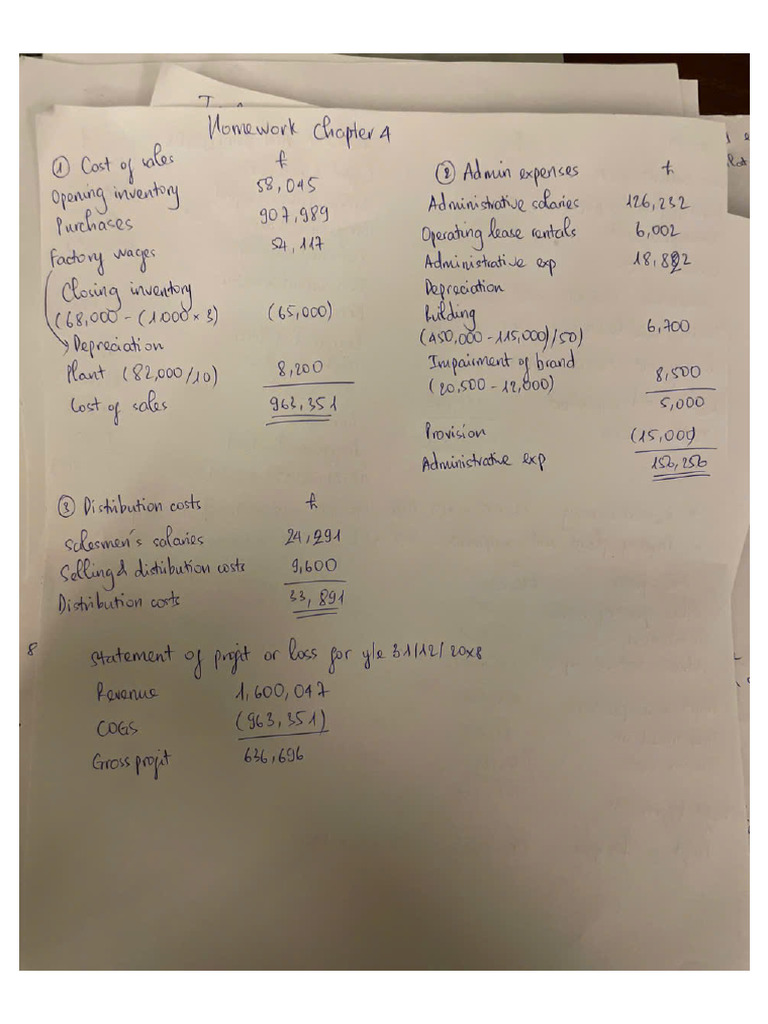 Homework Chapter 4
① Cost of sales £
Opening inventory 58,045
Purchases 907,989
Factory wages 54,117
Closing inventory
(68,000 - (1000 × 3) (65,000)
Depreciation
Plant (82,000/10) 8,200
Cost of sales 963,351
② Admin expenses £
Administrative salaries 126,232
Operating lease rentals 6,002
Administrative exp 18,822
Depreciation
Building
(450,000 - 115,000)/50) 6,700
Impairment of brand
(20,500 - 12,000) 8,500
5,000
Provision (15,000)
Administrative exp 156,256
③ Distribution costs £
Salesmen's salaries 24,291
Selling & distribution costs 9,600
Distribution costs 33,891
8 Statement of profit or loss for y/e 31/12/20x8
Revenue 1,600,047
COGS (963,351)
Gross profit 636,696